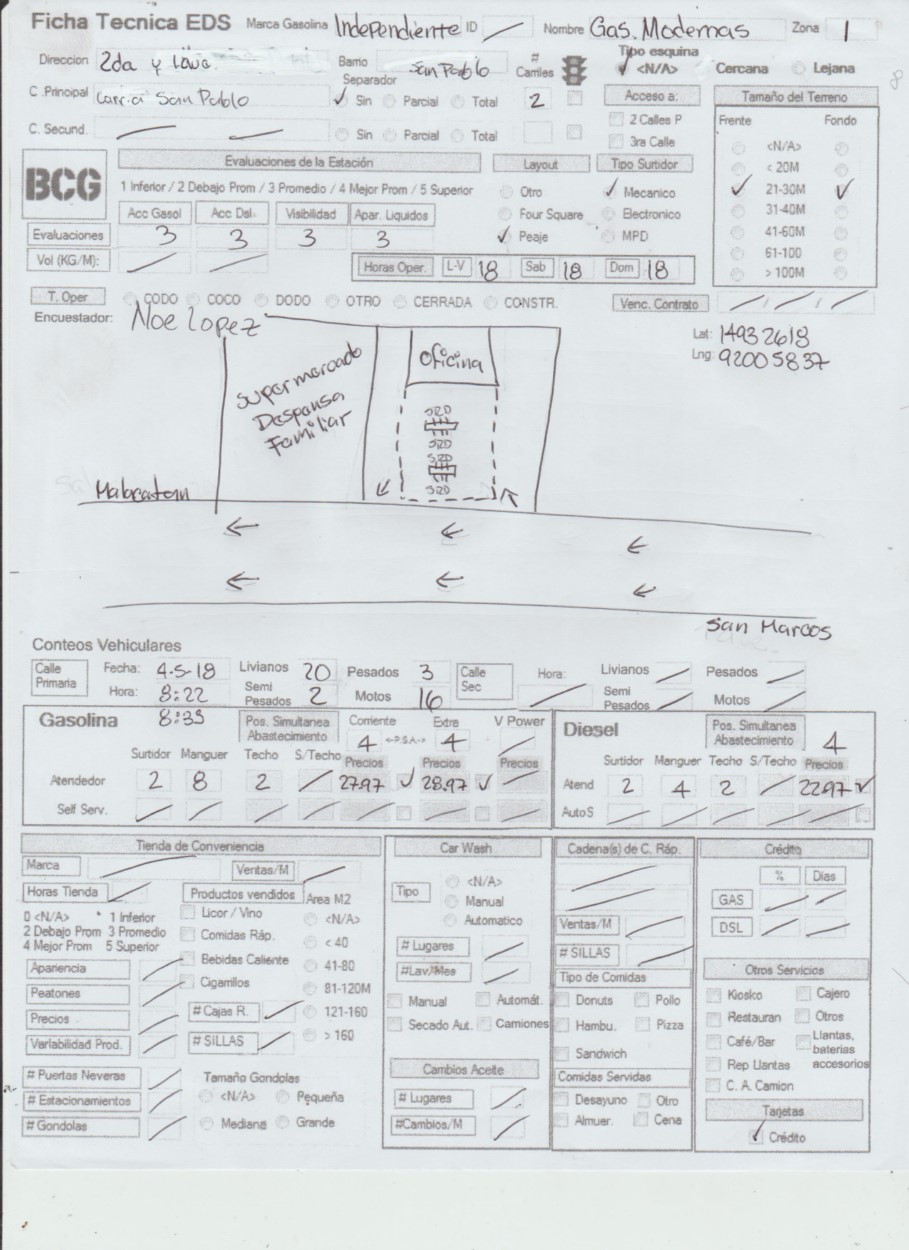 Ficha Tecnica EDS Marca Gasolina Independiente ID Nombre Gas. Modernas Zona 1
Direccion 2da y Barrio San Pablo # Carriles Tipo esquina <N/A> Cercana Lejana
Separador
C .Principal Carr. a San Pablo Sin Parcial Total 2 Acceso a: Tamaño del Terreno
C. Secund. Sin Parcial Total 2 Calles P Frente Fondo
3ra Calle <N/A>
BCG Evaluaciones de la Estación Layout Tipo Surtidor < 20M
1 Inferior / 2 Debajo Prom / 3 Promedio / 4 Mejor Prom / 5 Superior Otro Mecanico 21-30M
Acc Gasol Acc Dsl. Visibilidad Apar. Liquidos Four Square Electronico 31-40M
Evaluaciones 3 3 3 3 Peaje MPD 41-60M
Vol (KG/M): Horas Oper. L-V 18 Sab 18 Dom 18 61-100
> 100M
T. Oper CODO COCO DODO OTRO CERRADA CONSTR. Venc. Contrato
Encuestador: Noe Lopez
Lat: 14932618
Lng: 92005837
Supermercado Despensa Familiar
Oficina
SRD
SRD
SRD
SRD
Malacatan
San Marcos
Conteos Vehiculares
Calle Primaria Fecha: 4-5-18 Livianos 20 Pesados 3 Calle Sec Hora: Livianos Pesados
Hora: 8:22 Semi Pesados 2 Motos 16 Semi Pesados Motos
8:35
Gasolina Pos. Simultanea Abastecimiento Corriente 4 <-P.S.A.-> Extra 4 V Power Diesel Pos. Simultanea Abastecimiento 4
Surtidor Manguer Techo S/Techo Precios Precios Precios Surtidor Manguer Techo S/Techo Precios
Atendedor 2 8 2 27.97 28.97 Atend 2 4 2 22.97
Self Serv. Auto S
Tienda de Conveniencia Car Wash Cadena(s) de C. Ráp. Crédito
Marca Ventas/M % Dias
Horas Tienda Productos vendidos Area M2 Tipo <N/A> GAS
0 <N/A> * 1 Inferior Licor / Vino <N/A> Manual
2 Debajo Prom 3 Promedio Comidas Ráp. < 40 Automatico Ventas/M DSL
4 Mejor Prom 5 Superior # Lugares # SILLAS
Apariencia Bebidas Caliente 41-80 #Lav/Mes Tipo de Comidas Otros Servicios
Peatones Cigarrillos 81-120M Manual Automát. Donuts Pollo Kiosko Cajero
Precios # Cajas R. 121-160 Secado Aut. Camiones Hambu. Pizza Restauran Otros
Variabilidad Prod. # SILLAS > 160 Sandwich Café/Bar Llantas, baterias accesorios
# Puertas Neveras Tamaño Gondolas Cambios Aceite Comidas Servidas Rep Llantas
# Estacionamientos <N/A> Pequeña # Lugares Desayuno Otro C. A. Camion
# Gondolas Mediana Grande #Cambios/M Almuer. Cena Tarjetas
Crédito